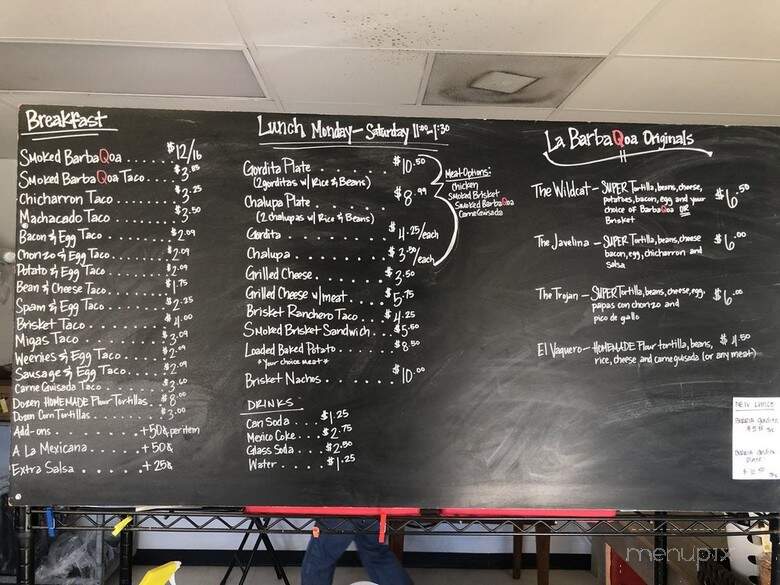 Breakfast
Smoked BarbaQoa ...... $12/16
Smoked BarbaQoa Taco ..... $3.85
Chicharron Taco ........ $3.25
Machacado Taco ........ $3.50
Bacon & Egg Taco ....... $2.09
Chorizo & Egg Taco ...... $2.09
Potato & Egg Taco ....... $2.09
Bean & Cheese Taco ...... $1.75
Spam & Egg Taco ....... $2.25
Brisket Taco .......... $4.00
Migas Taco .......... $3.09
Weenies & Egg Taco ...... $2.09
Sausage & Egg Taco ...... $2.09
Carne Guisada Taco ...... $3.60
Dozen HOMEMADE Flour Tortillas.. $8.00
Dozen Corn Tortillas ....... $3.00
Add-ons ........ +50¢ per item
A La Mexicana ...... +50¢
Extra Salsa ....... +25¢
Lunch Monday-Saturday 11:00-1:30
Gordita Plate ....... $10.50
(2 gorditas w/ Rice & Beans)
Chalupa Plate ....... $8.99
(2 chalupas w/ Rice & Beans)
Gordita ......... $4.25/each
Chalupa ......... $3.50/each
Meat Options:
Chicken
Smoked Brisket
Smoked BarbaQoa
Carne Guisada
Grilled Cheese ...... $3.50
Grilled Cheese w/meat .... $5.75
Brisket Ranchero Taco .... $4.25
Smoked Brisket Sandwich .. $5.50
Loaded Baked Potato .... $8.50
*Your choice Meat*
Brisket Nachos ....... $10.00
DRINKS
Can Soda .... $1.25
Mexico Coke ... $2.75
Glass Soda .... $2.50
Water ...... $1.25
La BarbaQoa Originals
The Wildcat - SUPER Tortilla, beans, cheese, $6.50
potatoes, bacon, egg and your
choice of BarbaQoa OR
Brisket
The Javelina - SUPER Tortilla, beans, cheese $6.00
bacon, egg, chicharron and
salsa
The Trojan - SUPER Tortilla, beans, cheese, egg, $6.00
papas con chorizo and
pico de gallo
El Vaquero - HOMEMADE Flour tortilla, beans, $4.50
rice, cheese and carne guisada (or any meat)
NEW LUNCH
menupix